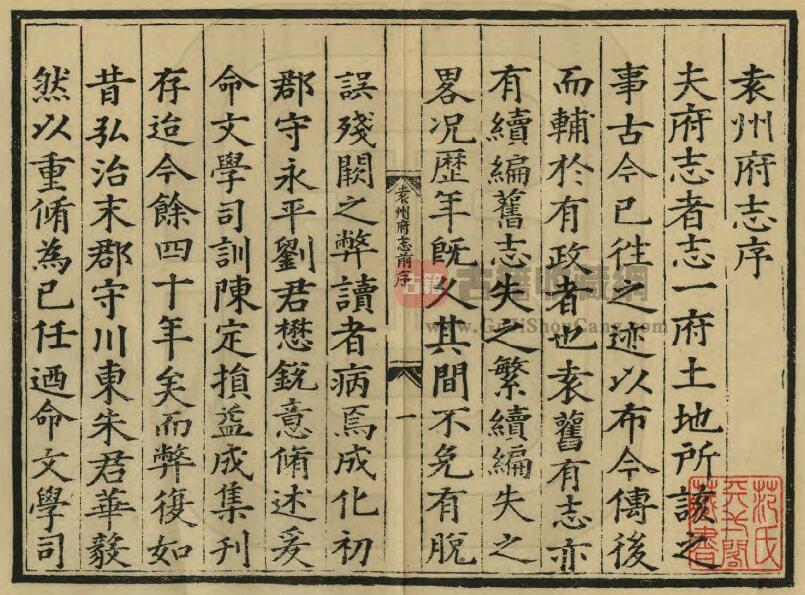 袁州府志序
夫府志者志一府土地所該之
事古今已徃之迹以布今傳後
而輔於有政者也袁舊有志亦
有續編舊志失之繁續編失之
畧况歷年旣久其間不免有脫
袁州府志前序
一
誤殘闕之弊讀者病焉成化初
郡守永平劉君懋銳意脩述爰
命文學司訓陳定損益成集刊
存迨今餘四十年矣而弊復如
昔弘治末郡守川東朱君華毅
然以重脩為己任迺命文學司
范氏
天一閣
藏書
古籍
古籍收藏網
www.GuJiShouCang.com